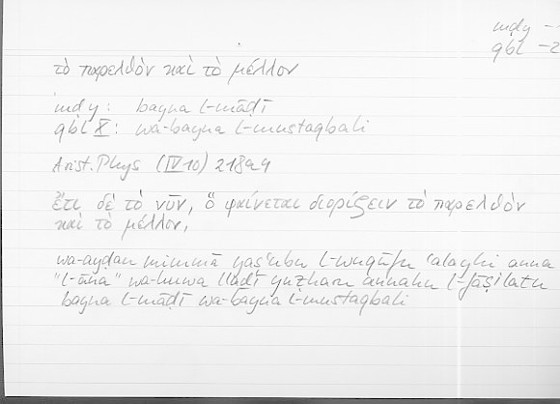 mdy -
qbl -2
τὸ παρελθὸν καὶ τὸ μέλλον
mdy : bayna l-māḍī
qbl X : wa-bayna l-mustaqbali
Arist. Phys (IV 10) 218a9
ἔτι δὲ τὸ νῦν, ὃ φαίνεται διορίζειν τὸ παρελθὸν
καὶ τὸ μέλλον,
wa-ayḍan mimmā yaṣʿubu l-wuqūfu ʿalayhi anna
"l-āna" wa-huwa llaḏī yuẓhanu annahu l-fāṣilatu
bayna l-māḍī wa-bayna l-mustaqbali